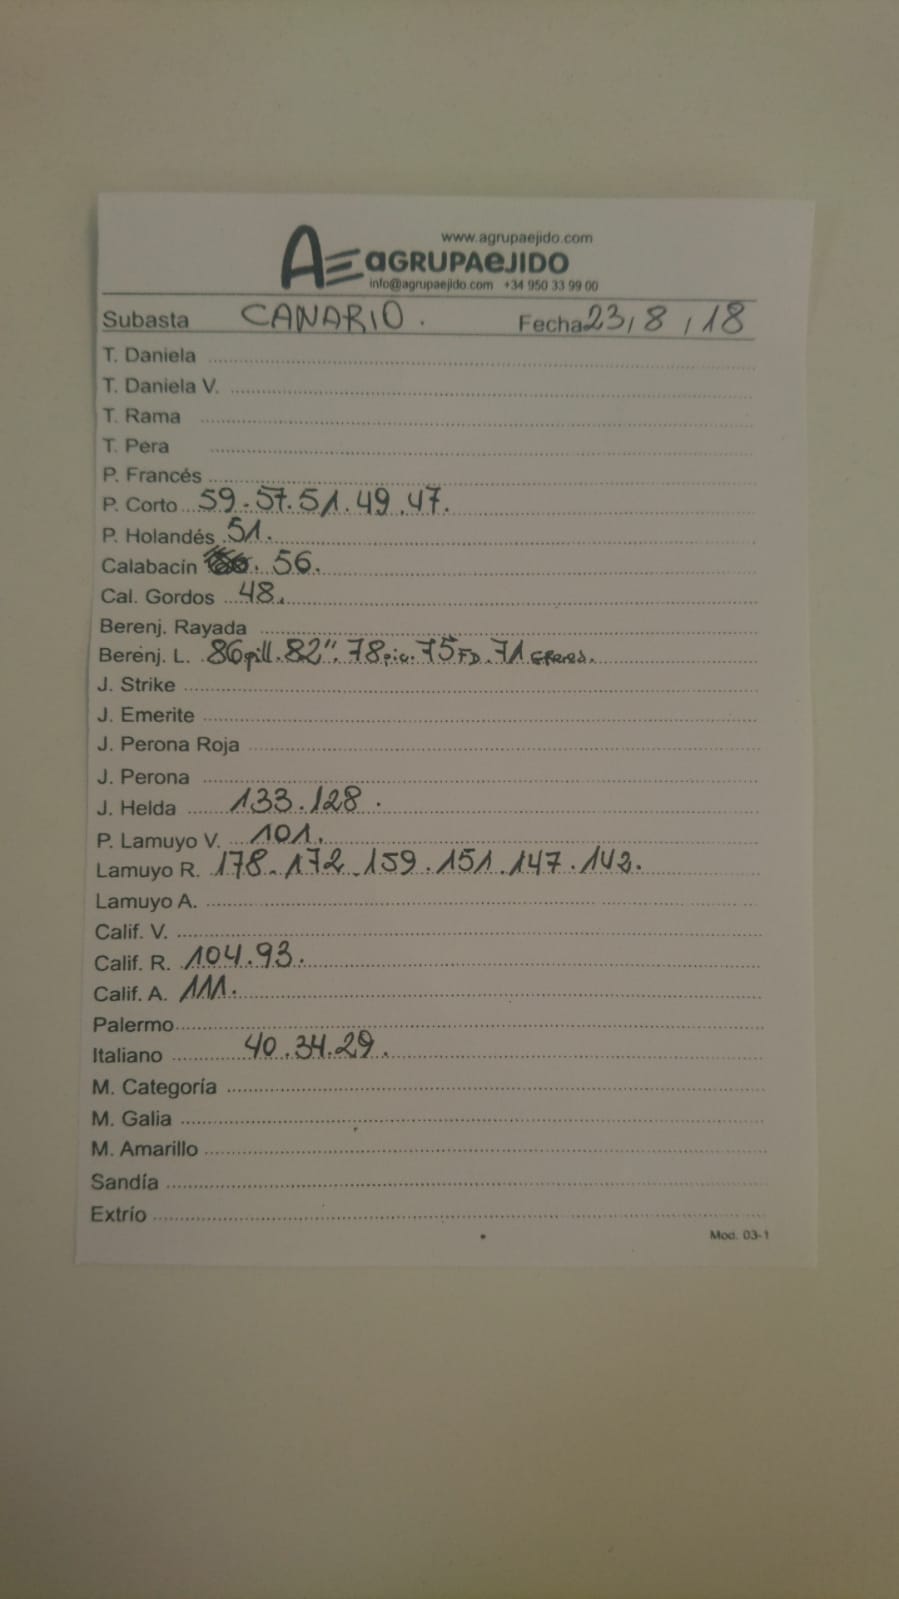 www.agrupaejido.com
AE aGRUPAeJIDO
info@agrupaejido.com +34 950 33 99 00
Subasta CANARIO. Fecha 23/8/18
T. Daniela
T. Daniela V.
T. Rama
T. Pera
P. Francés
P. Corto 59.57.51.49.47.
P. Holandés 51.
Calabacín 56.
Cal. Gordos 48.
Berenj. Rayada
Berenj. L. 86 pill. 82". 78 pic. 75 FD. 71
J. Strike
J. Emerite
J. Perona Roja
J. Perona
J. Helda 133.128.
P. Lamuyo V. 101.
Lamuyo R. 178.172.159.151.147.142.
Lamuyo A.
Calif. V.
Calif. R. 104.93.
Calif. A. 111.
Palermo
Italiano 40.34.29.
M. Categoría
M. Galia
M. Amarillo
Sandía
Extrío
Mod. 03-1